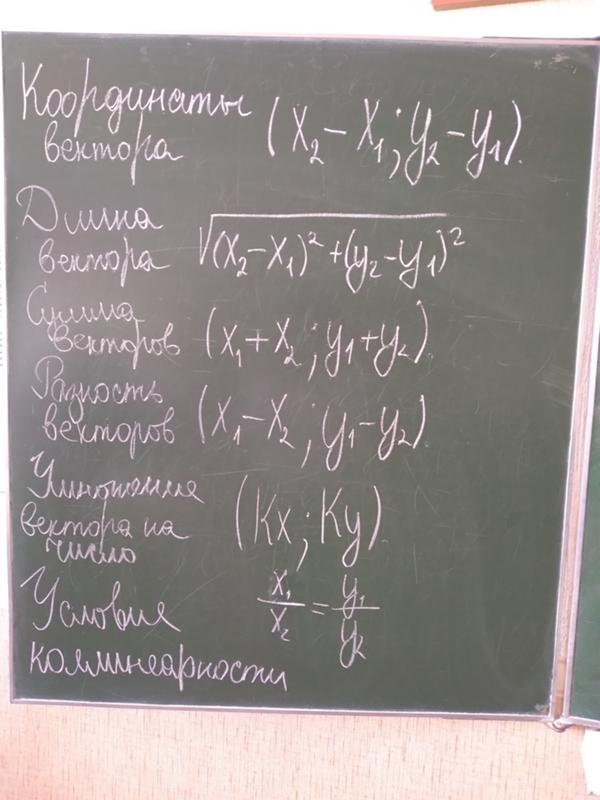 Координаты
вектора (x₂ − x₁; y₂ − y₁).
Длина
вектора √(x₂−x₁)² + (y₂−y₁)²
Сумма
векторов (x₁+x₂; y₁+y₂)
Разность
векторов (x₁−x₂; y₁−y₂)
Умножение
вектора на (Kx; Ky)
число
Условия x₁/x₂ = y₁/y₂
коллинеарности